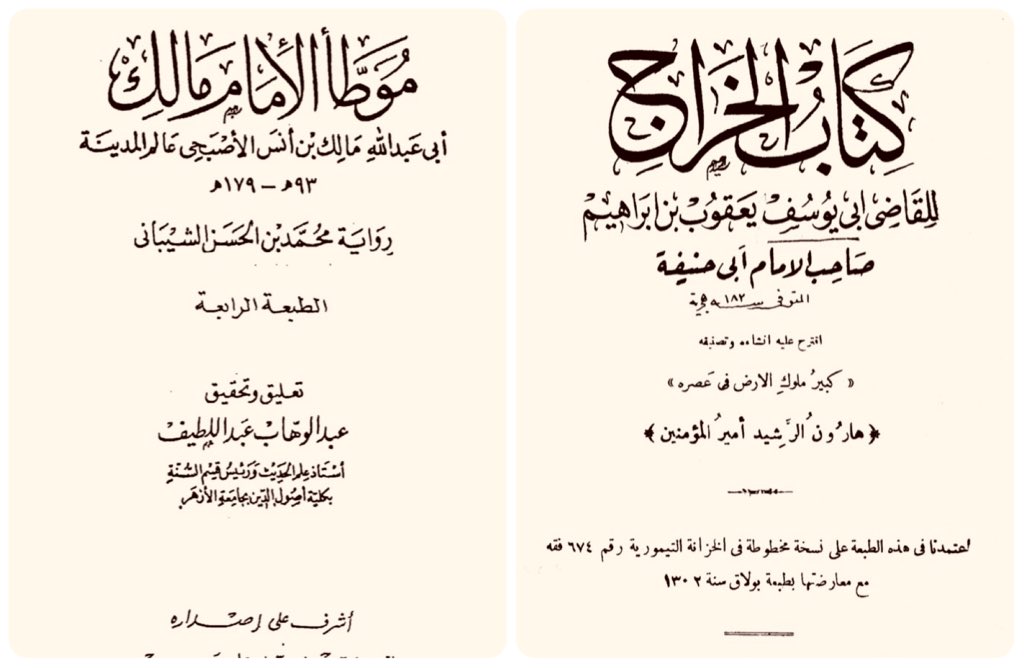 موطأ الأمام مالك
أبى عبدالله مالك بن أنس الأصبحى عالم المدينة
٩٣هـ – ١٧٩هـ
رواية محمد بن الحسن الشيبانى
الطبعة الرابعة
تعليق وتحقيق
عبد الوهاب عبد اللطيف
أستاذ علم الحديث ورئيس قسم السنة
بكلية أصول الدين بجامعة الأزهر
أشرف على إصداره
كتاب الخراج
للقاضى ابى يوسف يعقوب بن ابراهيم
صاحب الامام أبى حنيفة
المتوفى سنة ١٨٢ هجرية
اقترح عليه انشاءه وتصنيفه
« كبير ملوك الارض فى عصره »
﴿ هارون الرشيد أمير المؤمنين ﴾
اعتمدنا فى هذه الطبعة على نسخة مخطوطة فى الخزانة التيمورية رقم ٦٧٤ فقه
مع معارضتها بطبعة بولاق سنة ١٣٠٢